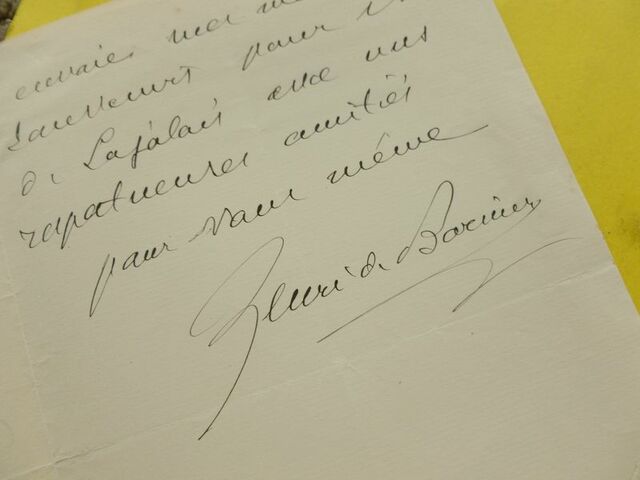 envoie mes
souvenirs pour
de Lafalais avec mes
respectueuses amitiés
pour vous même
Henri de Bornier